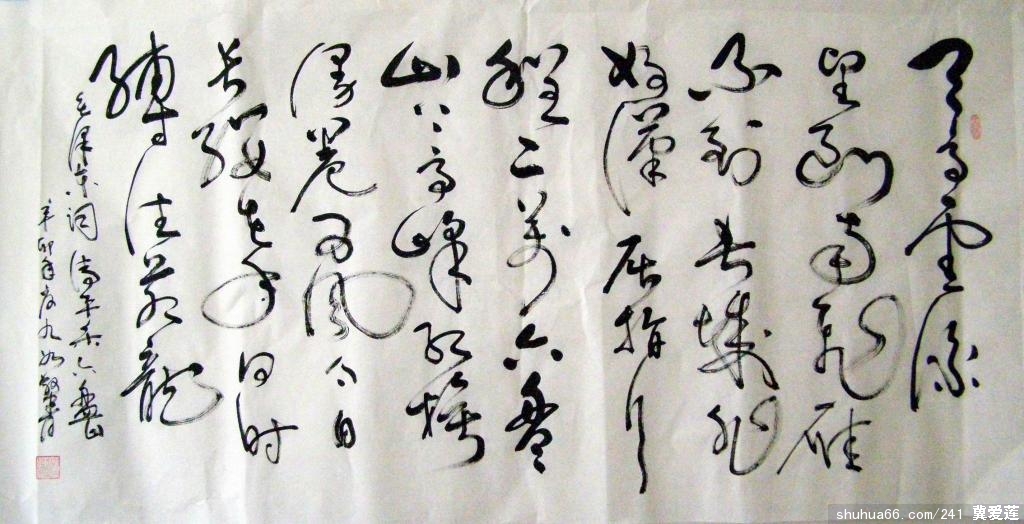 天高雲淡
望断南飛雁
不到長城非
好漢屈指行
程二萬六盤
山上高峰红旗
漫卷西風今日
長纓在手何时
縛住苍龍
毛泽东词清平乐六盘山
辛卯年九如
shuhua66.com/241 冀爱莲